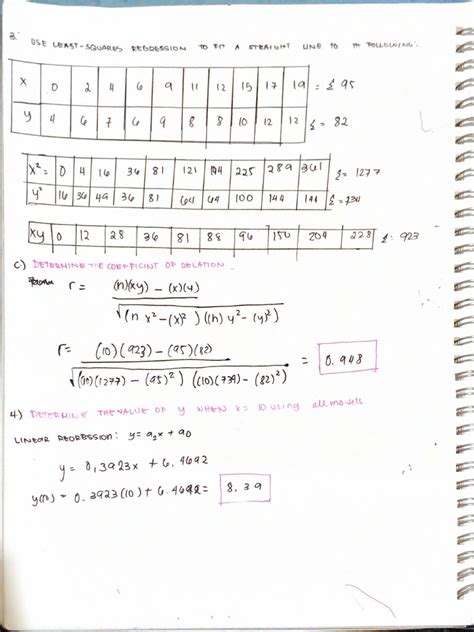 3. USE LEAST-SQUARES REGRESSION TO FIT A STRAIGHT LINE TO THE FOLLOWING:
X 0 2 4 6 9 11 12 15 17 19 = Σ 95
Y 4 6 7 6 9 8 8 10 12 12 Σ = 82
X² = 0 4 16 36 81 121 144 225 289 361 Σ = 1277
Y² 16 36 49 36 81 64 64 100 144 144 Σ = 734
XY 0 12 28 36 81 88 96 150 204 228 Σ: 923
C) DETERMINE THE COEFFICINT OF DELATION.
r = (n)(xy) - (x)(y)
√(n x² - (x)²) ((n) y² - (y)²)
r = (10)(923) - (95)(82) = 0.948
√((10)(1277) - (95)²) ((10)(734) - (82)²)
4) DETERMINE THE VALUE OF Y WHEN X = 10 using all models
LINEAR REGRESSION: y = a₁x + a₀
y = 0.3923x + 6.4692
y(10) = 0.3923(10) + 6.4692 = 8.39